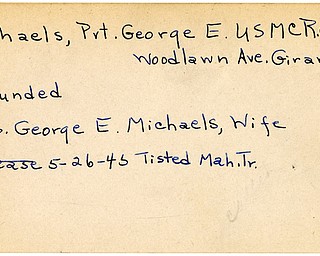 haels, Pvt. George E. USMCR.
Woodlawn Ave. Girar
unded
. George E. Michaels, Wife
ease 5-26-45 Tisted Mah. Tr.